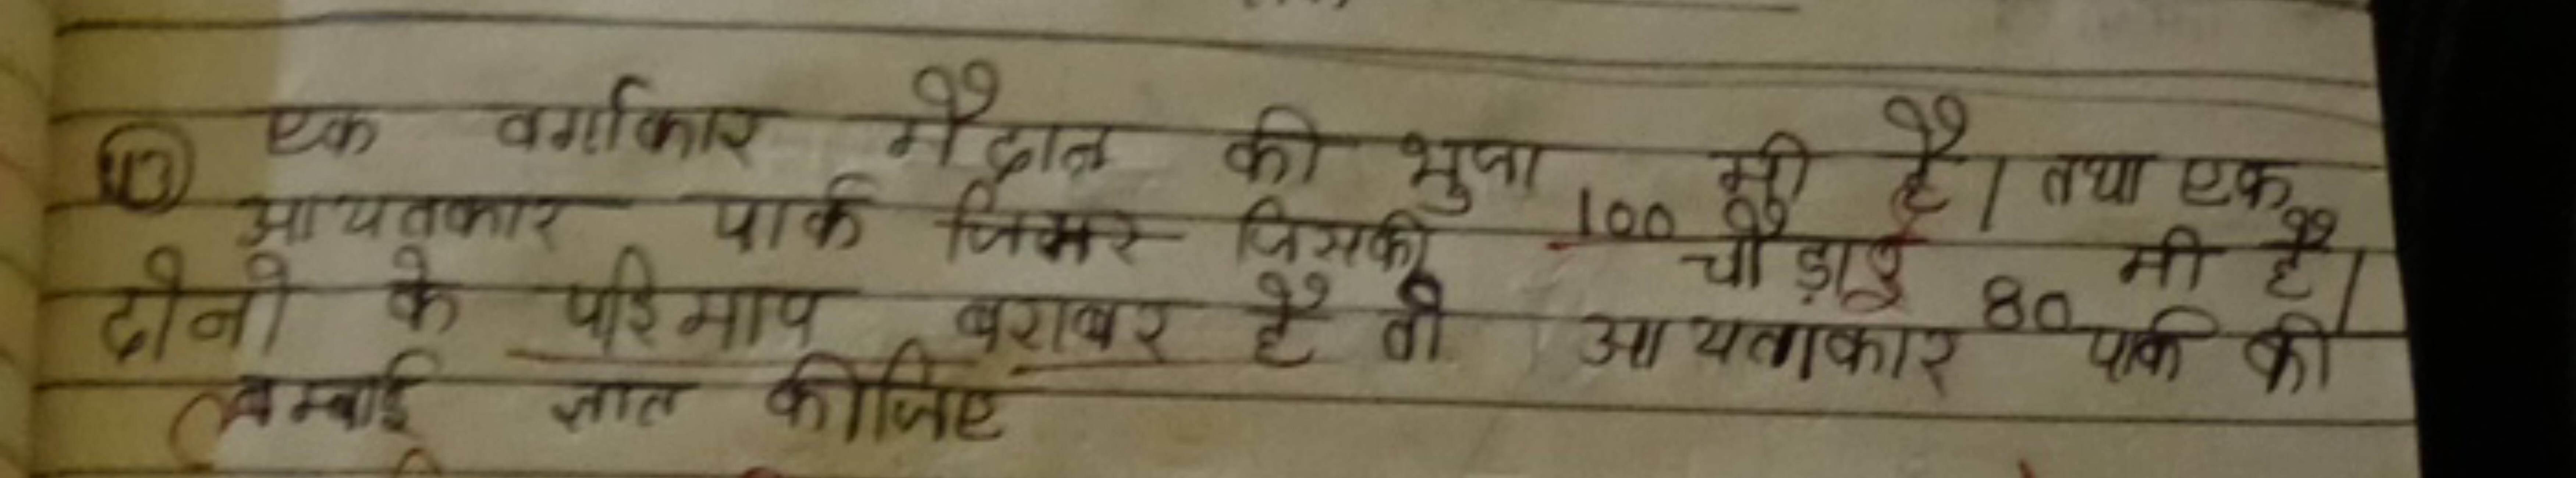 एक वर्गाकार मैदान की भुजा 100 मी है। तथा एक
आयतकार पार्क जिसकी चौड़ाई 80 मी है।
दोनो के परिमाप बराबर है तो आयताकार पार्क की
लम्बाई ज्ञात कीजिए